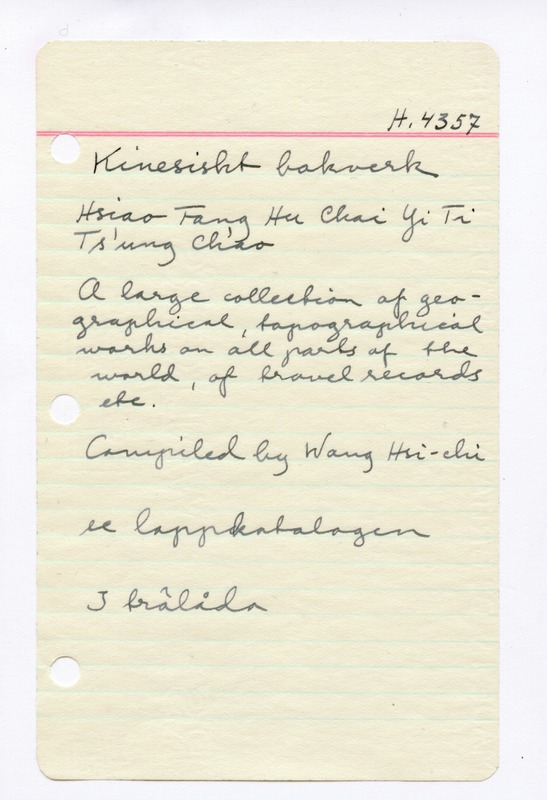 H. 4357
Kinesiskt bokverk
Hsiao Fang Hu Chai Yi Ti
Ts'ung Ch'ao
A large collection of geo-
graphical, topographical
works on all parts of the
world, of travel records
etc.
Compiled by Wang Hsi-chi
se lappkatalogen
I trälåda